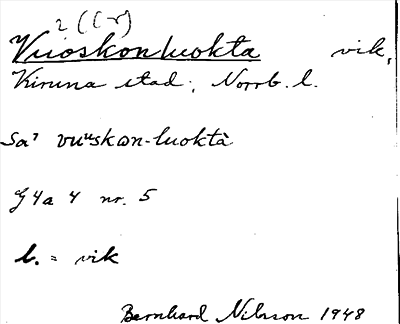 2 (C-r)
Vuoskonluokta vik,
Kiruna stad, Norrb. l.
Sa' vuuskon-luoktà
G4a 4 nr. 5
l. = vik
Bernhard Nilsson 1948